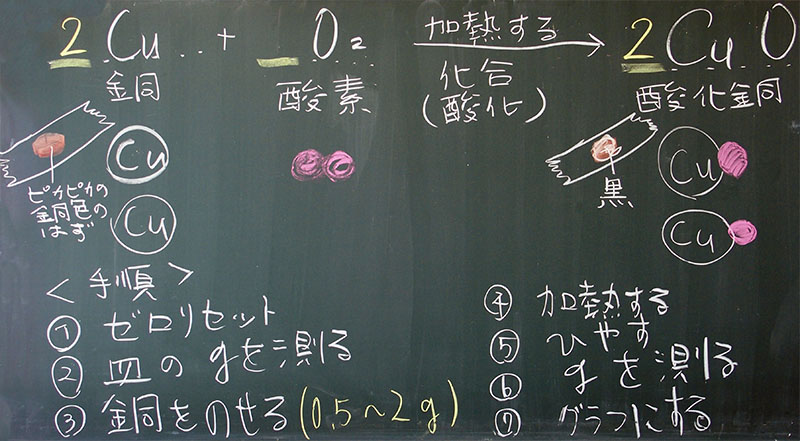 2 Cu + _ O₂ 加熱する → 2 Cu O
銅 酸素 化合 酸化銅
(酸化)
Cu Cu
ピカピカの 黒
銅色の
はず
Cu Cu
<手順>
① ゼロリセット
② 皿のgを測る
③ 銅をのせる(0.5~2g)
④ 加熱する
⑤ ひやす
⑥ gを測る
⑦ グラフにする